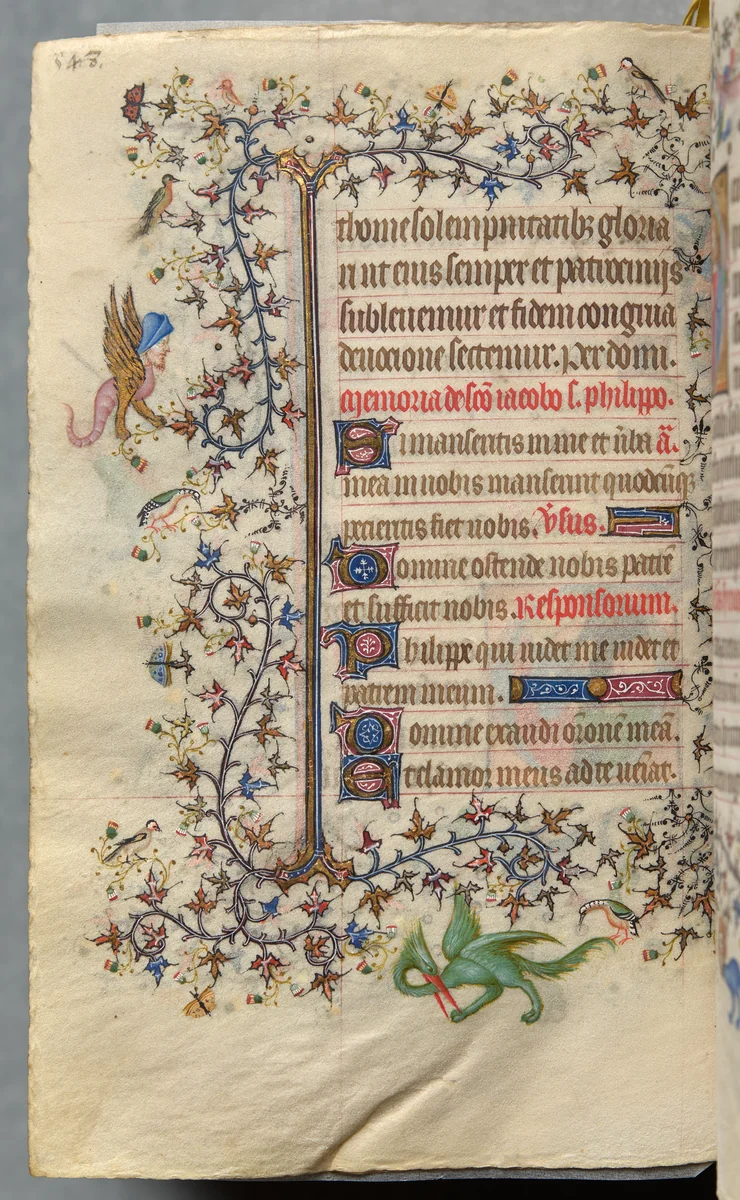 543.
thome solempnitatibꝫ gloria
ri ut eius semper et patrocinijs
subleuemur et fidem congrua
deuocione sectemur. Per domi.
Memoria de sc̄o iacobo s. philippo.
Si manseritis in me et v̄ba a͞.
mea in nobis manserint quodcūqꝫ
petieritis fiet uobis. v̄sus.
Domine ostende nobis patrē
et sufficit nobis. Responsorium.
Philippe qui uidet me uidet et
patrem meum.
Domine exaudi or̄onē meā.
Et clamor meus ad te ueīat.